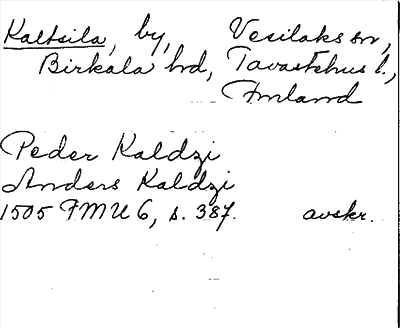 Kaltsila, by, Vesilaks sn,
Birkala hd, Tavastehus l.,
Finland
Peder Kaldzi
Anders Kaldzi
1505 FMU 6, s. 387. avskr.